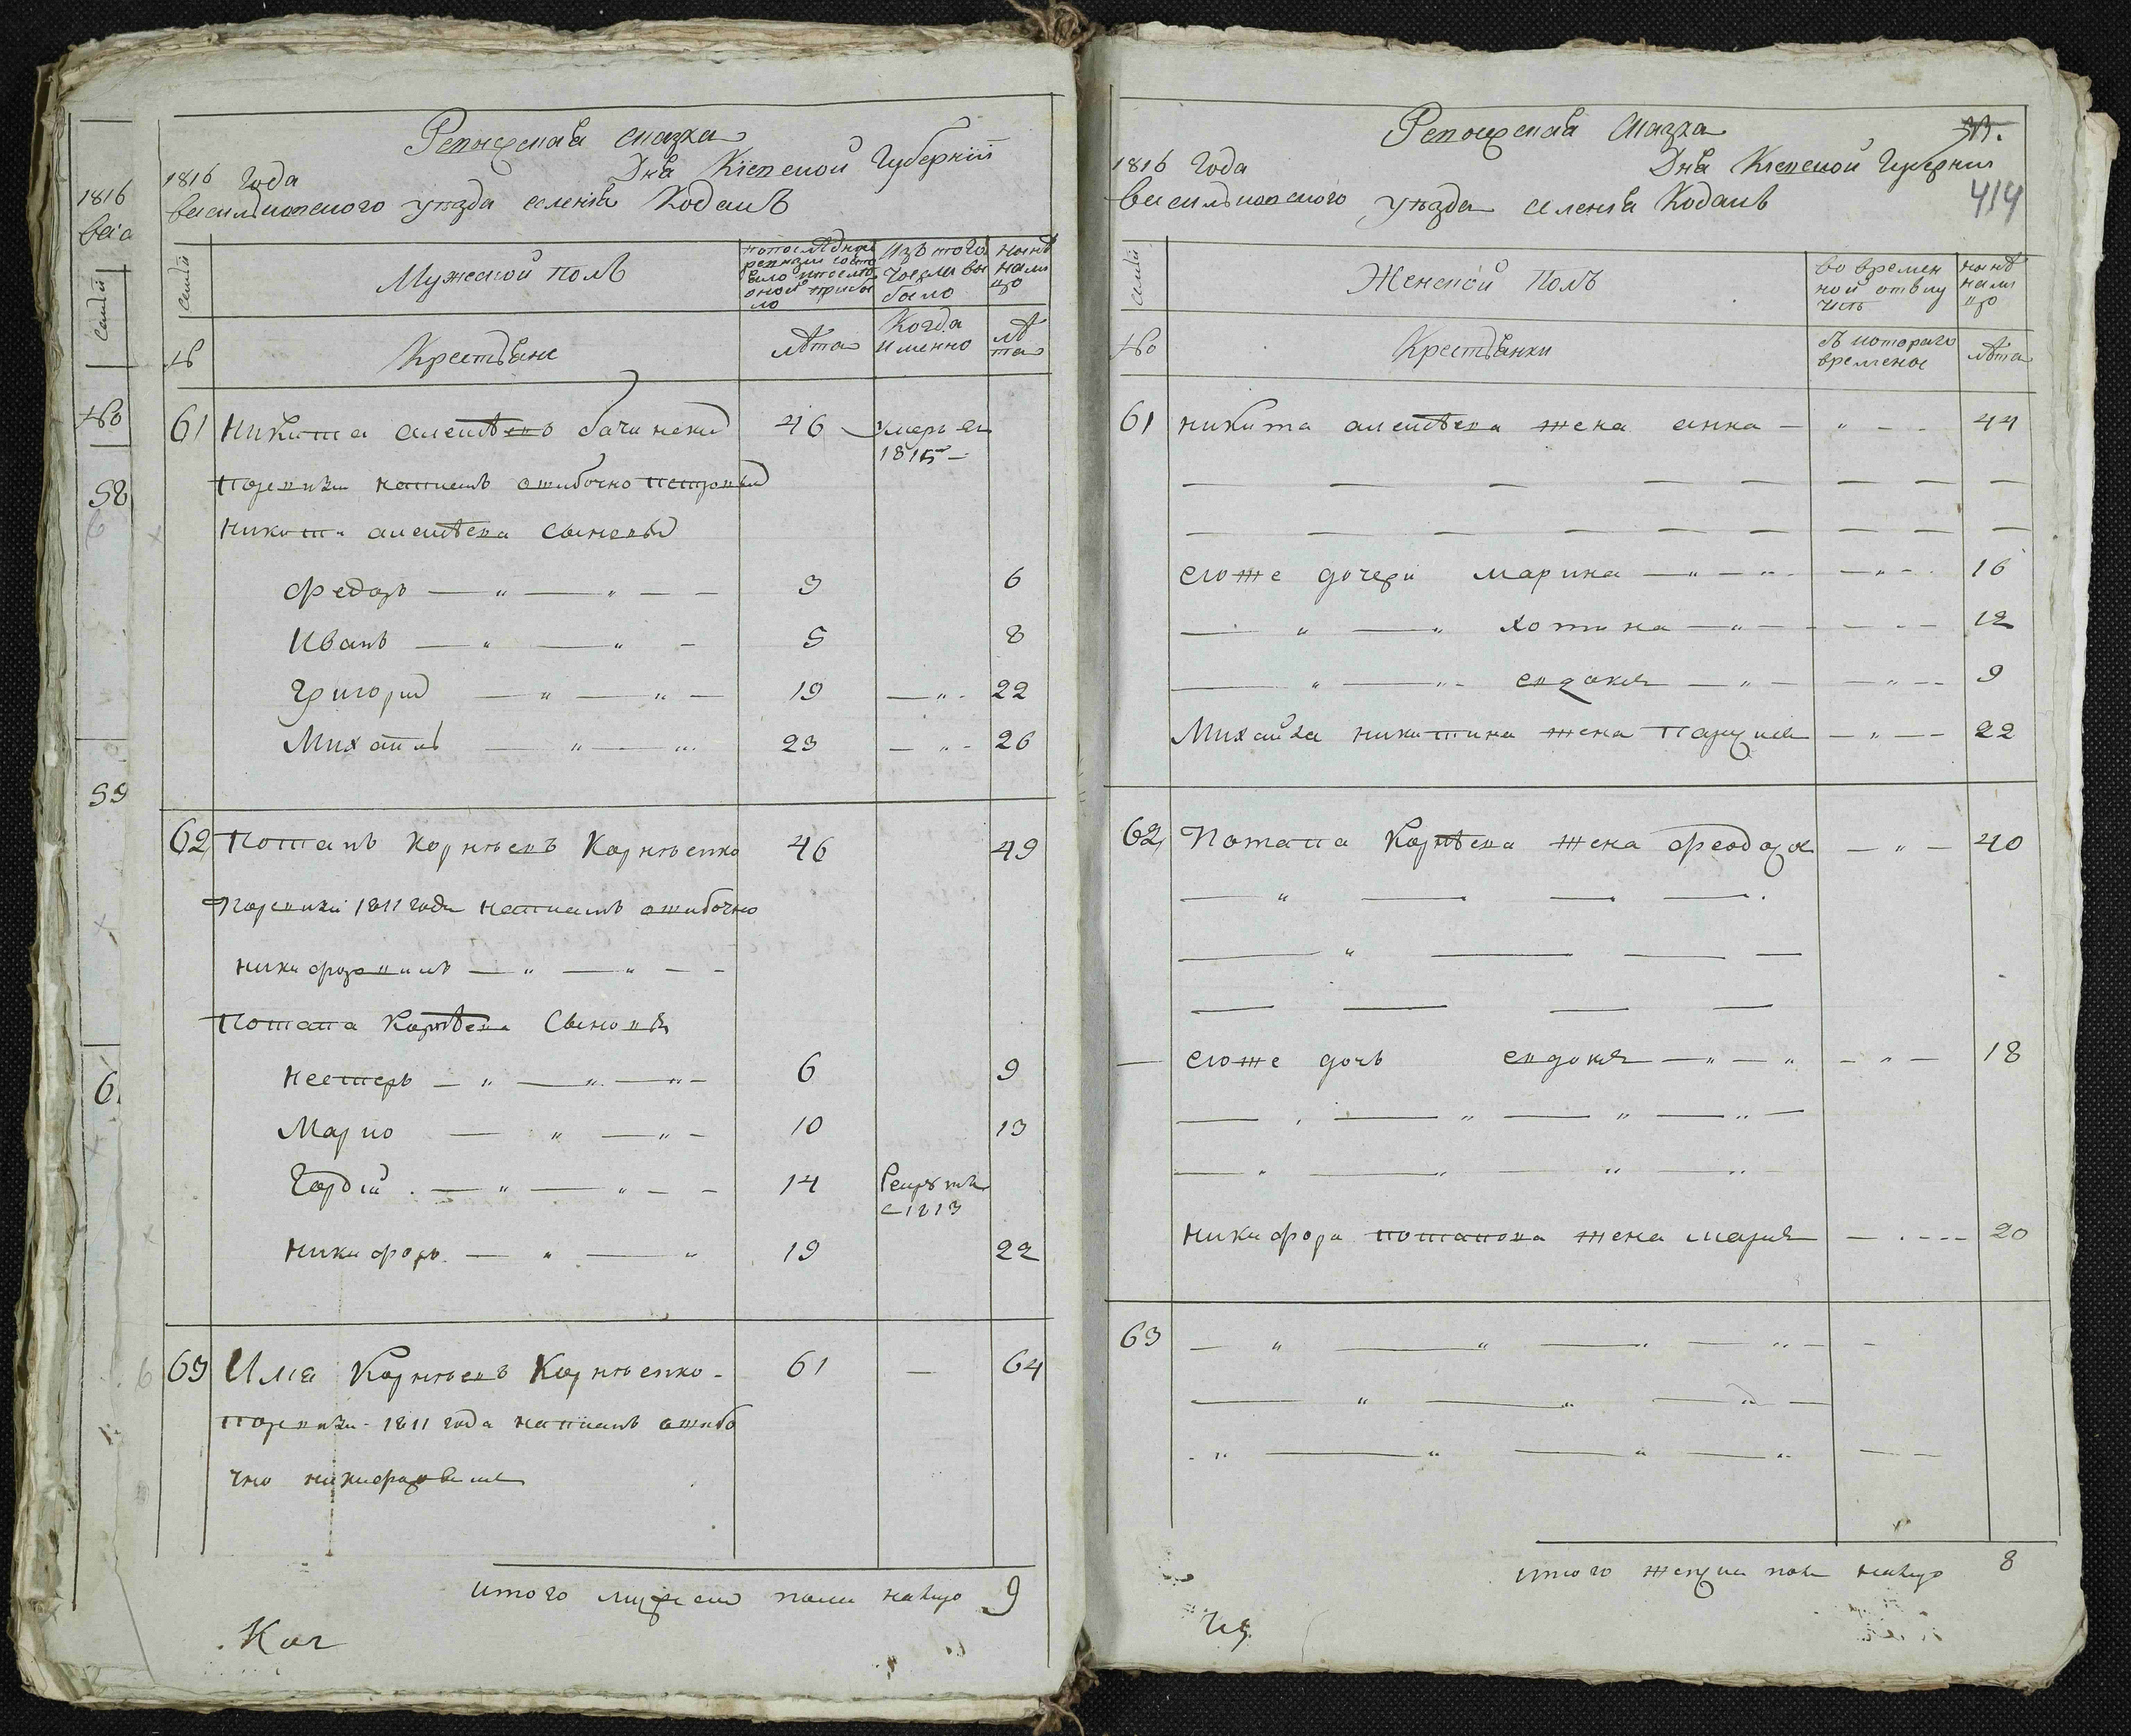 1816
Вас
семьи
№
58
59
6
Ревизская сказка
1816 Года
Дня Кіевской Губерніи
Васильковского уезда селенія Кодакъ
семьи
Мужеской полъ
Изъ того
числа вы
было
ныне
нали
цо
№
Крестьяне
лѣта
Когда
именно
лѣ
та
61 Никита алексѣевъ бачинский 46 умеръ въ
1815 –
поревизии написанъ ошибочно
Никиты алексѣева сыновья
Федоръ 3 6
Иванъ 5 8
Григорий 19 22
Михаилъ 23 26
62 Потапъ Корнѣевъ Корнѣенко 46 49
поревизии 1811 года написанъ ошибочно
никифоровымъ
Потапа Корнѣева Сыновья
Нестеръ 6 9
Марко 10 13
Гордій 14 Рекрутъ
с 1813
Никифоръ 19 22
63 Илья Корнѣевъ Корнѣенко 61 — 64
поревизии 1811 года написанъ ошибо
чно никифоровымъ
итого мужеска пола налицо 9
Ревизская сказка
1816 Года
Дня Кіевской Губерніи
414
Васильковского уезда селенія Кодакъ
семьи
Женской полъ
во времен
ной отлу
чкѣ
нынѣ
нали
цо
№
Крестьянки
съ котораго
времени
лѣта
61 никиты алексѣева жена анна 44
егоже дочери марина 16
хотина 12
евдокия 9
Михайла никитина жена 22
62 Потапа Корнѣева жена феодора 40
егоже дочь евдокия 18
никифора потапова жена мария 20
63
итого женска пола налицо 8